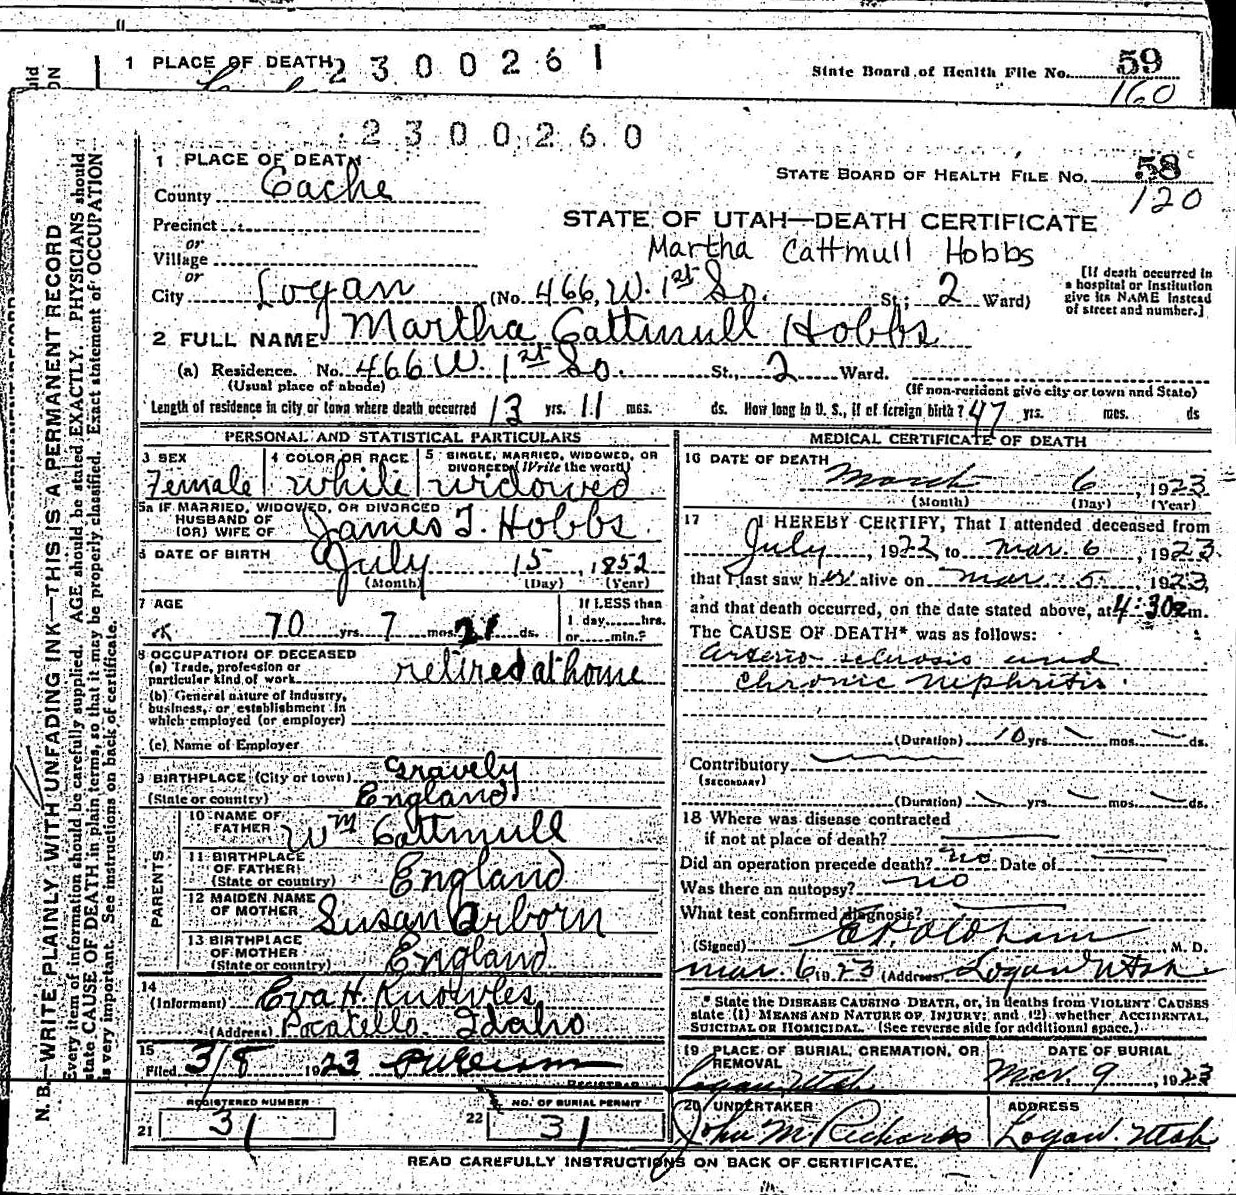 1 PLACE OF DEATH
2300261
State Board of Health File No. 59
160
2300260
1 PLACE OF DEATH
STATE BOARD OF HEALTH FILE NO. 58
120
County Cache
Precinct
or
Village
or
STATE OF UTAH—DEATH CERTIFICATE
Martha Cattmull Hobbs
City Logan (No. 466, W. 1st So. St; 2 Ward)
[If death occurred in
a hospital or institution
give its NAME instead
of street and number.]
2 FULL NAME Martha Cattmull Hobbs
(a) Residence. No. 466 W. 1st So. St., 2 Ward.
(Usual place of abode)
(If non-resident give city or town and State)
Length of residence in city or town where death occurred 13 yrs. 11 mos. ds. How long in U. S., if of foreign birth? 47 yrs. mos. ds
PERSONAL AND STATISTICAL PARTICULARS
3 SEX
Female
4 COLOR OR RACE
White
5 SINGLE, MARRIED, WIDOWED, OR
DIVORCED (Write the word)
widowed
5a IF MARRIED, WIDOWED, OR DIVORCED
HUSBAND OF
(OR) WIFE OF James T. Hobbs
6 DATE OF BIRTH July 15, 1852
(Month) (Day) (Year)
7 AGE
70 yrs. 7 mos. 21 ds.
If LESS than
1 day......hrs.
or......min.?
8 OCCUPATION OF DECEASED
(a) Trade, profession or
particular kind of work retired at home
(b) General nature of industry,
business, or establishment in
which employed (or employer)
(c) Name of Employer
9 BIRTHPLACE (City or town) Gravely
(State or country) England
PARENTS
10 NAME OF
FATHER Wm Cattmull
11 BIRTHPLACE
OF FATHER
(State or country) England
12 MAIDEN NAME
OF MOTHER Susan Arborn
13 BIRTHPLACE
OF MOTHER
(State or country) England
14
(Informant) Eva H. Knowles
(Address) Pocatello Idaho
15
Filed 3/8 1923
REGISTRAR
REGISTERED NUMBER
21 31
22
NO. OF BURIAL PERMIT
31
MEDICAL CERTIFICATE OF DEATH
16 DATE OF DEATH
March 6, 1923
(Month) (Day) (Year)
17 I HEREBY CERTIFY, That I attended deceased from
July, 1922, to mar. 6, 1923
that I last saw her alive on mar. 5, 1923,
and that death occurred, on the date stated above, at 4:30 a m.
The CAUSE OF DEATH* was as follows:
arterio sclerosis and
chronic nephritis.
(Duration) 10 yrs. mos. ds.
Contributory
(SECONDARY)
(Duration) yrs. mos. ds.
18 Where was disease contracted
if not at place of death?
Did an operation precede death? no Date of
Was there an autopsy? no
What test confirmed diagnosis?
(Signed) M. D.
mar. 6 1923 (Address) Logan Utah
* State the DISEASE CAUSING DEATH, or, in deaths from VIOLENT CAUSES
state (1) MEANS AND NATURE OF INJURY; and (2) whether ACCIDENTAL,
SUICIDAL OR HOMICIDAL. (See reverse side for additional space.)
19 PLACE OF BURIAL, CREMATION, OR
REMOVAL
Logan, Utah
DATE OF BURIAL
Mar. 9, 1923
20 UNDERTAKER
John M Richards
ADDRESS
Logan. Utah
READ CAREFULLY INSTRUCTIONS ON BACK OF CERTIFICATE.
N. B.—WRITE PLAINLY WITH UNFADING INK—THIS IS A PERMANENT RECORD
Every item of information should be carefully supplied. AGE should be stated EXACTLY. PHYSICIANS should
state CAUSE OF DEATH in plain terms, so that it may be properly classified. Exact statement of OCCUPATION
is very important. See instructions on back of certificate.